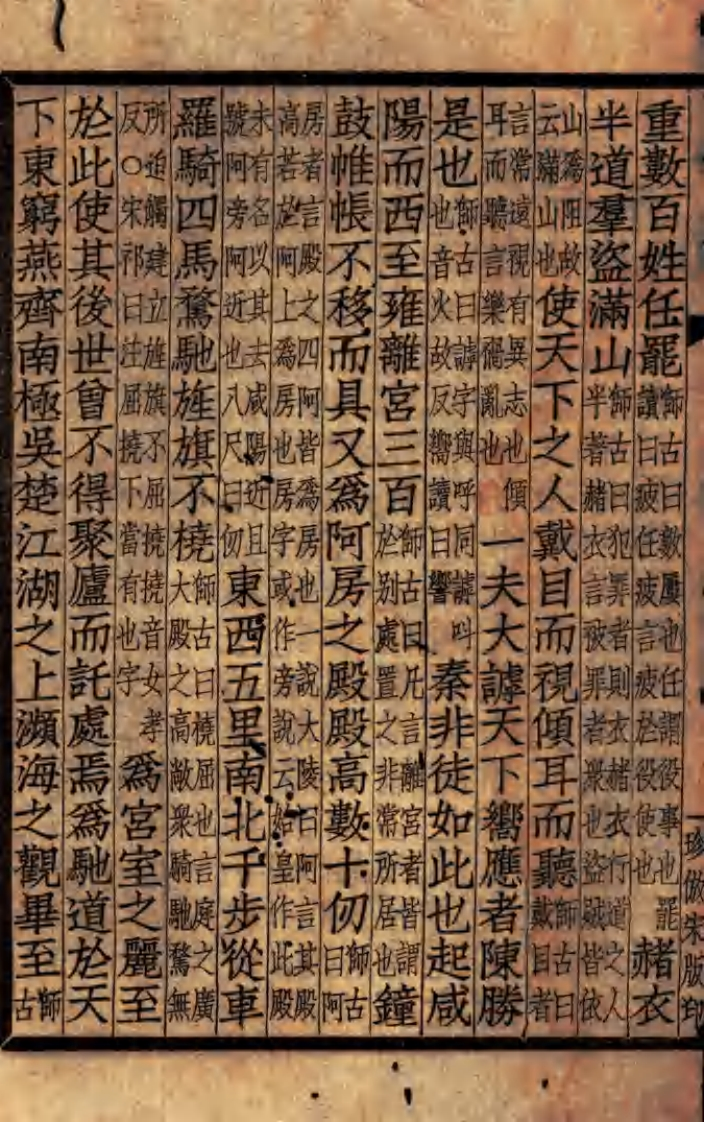 珍倣宋版印
重數百姓任罷師古曰數屢也任謂役事也罷讀曰疲任疲言疲於役使也赭衣
半道羣盜滿山師古曰犯罪者則衣赭衣行道之人半著赭衣言被罪者衆也盜賊皆依
山爲阻故云滿山也使天下之人戴目而視傾耳而聽師古曰戴目者
言常遠視有異志也傾耳而聽言樂禍亂也一夫大謼天下嚮應者陳勝
是也師古曰謼字與呼同謼叫也音火故反嚮讀曰響秦非徒如此也起咸
陽而西至雍離宮三百師古曰凡言離宮者皆謂於別處置之非常所居也鐘
鼓帷帳不移而具又爲阿房之殿殿高數十仞師古曰阿
房者言殿之四阿皆爲房也一說大陵曰阿言其殿高若於阿上爲房也房字或作旁說云始皇作此殿
未有名以其去咸陽近且號阿旁阿近也八尺曰仞東西五里南北千步從車
羅騎四馬騖馳旌旗不橈師古曰橈屈也言庭之廣大殿之高敞衆騎馳騖無
所迫觸建立旌旗不屈撓撓音女孝反○宋祁曰注屈撓下當有也字爲宮室之麗至
於此使其後世曾不得聚廬而託處焉爲馳道於天
下東窮燕齊南極吳楚江湖之上瀕海之觀畢至師古